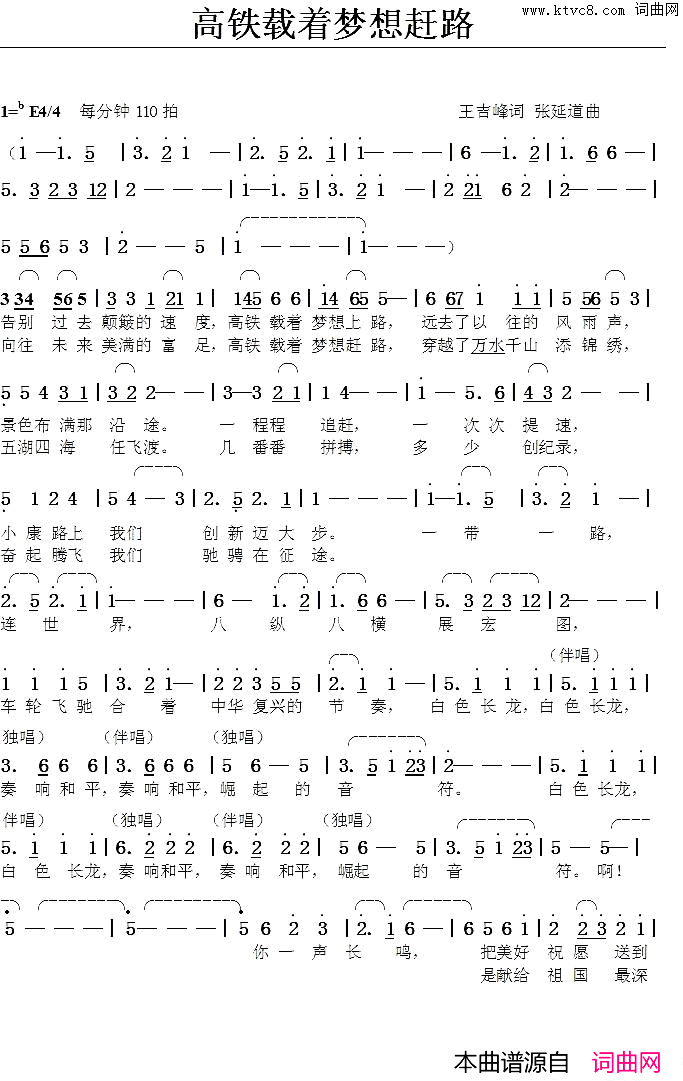 www.ktvc8.com 词曲网
高铁载着梦想赶路
1=ᵇE4/4 每分钟 110 拍 王吉峰词 张延道曲
（1 —1. 5 | 3. 2 1 — | 2. 5 2. 1 | 1— — — | 6 —1. 2 | 1. 6 6 — |
5. 3 2 3 12 | 2 — — — | 1—1. 5 | 3. 2 1 — | 2 21 6 2 | 2— — — |
5 5 6 5 3 | 2 — — 5 | 1 — — — | 1— — — ）
3 34 56 5 | 3 3 1 21 1 | 145 6 6 | 14 65 5— | 6 67 1 1 1 | 5 56 5 3 |
告别 过去 颠簸的 速 度，高铁 载着 梦想上 路， 远去了以 往的 风 雨声，
向往 未来 美满的 富 足，高铁 载着 梦想赶 路， 穿越了万水千山 添 锦绣，
5 5 4 3 1 | 3 2 2— — | 3—3 2 1 | 1 4— — | 1 — 5. 6 | 4 3 2 — — |
景色布 满那 沿 途。 一 程程 追赶， 一 次 次 提 速，
五湖四 海 任飞渡。 几 番番 拼搏， 多 少 创纪录，
5 1 2 4 | 5 4 — 3 | 2. 5 2. 1 | 1 — — — | 1—1. 5 | 3. 2 1 — |
小 康 路上 我们 创 新 迈 大 步。 一 带 一 路，
奋 起 腾飞 我们 驰 骋 在 征 途。
2. 5 2. 1 | 1— — — | 6 — 1. 2 | 1. 6 6 — | 5. 3 2 3 12 | 2— — — |
连 世 界， 八 纵 八 横 展 宏 图，
（伴唱）
1 1 1 5 | 3. 2 1— | 2 2 3 5 5 | 2. 1 1 — | 5. 1 1 1 | 5. 1 1 1 |
车 轮 飞 驰 合 着 中华 复兴的 节 奏， 白 色 长 龙，白 色 长龙，
独唱） （伴唱） （独唱）
3. 6 6 6 | 3. 6 6 6 | 5 6 — 5 | 3. 5 1 23 | 2— — — | 5. 1 1 1 |
奏 响 和 平，奏 响 和平，崛 起 的 音 符。 白 色 长龙，
伴唱） （独唱） （伴唱） （独唱）
5. 1 1 1 | 6. 2 2 2 | 6. 2 2 2 | 5 6 — 5 | 3. 5 1 23 | 5 — 5— |
白 色 长龙，奏 响和平， 奏 响 和平， 崛起 的 音 符。 啊！
5 — — — | 5— — — | 5 6 2 2 | 2. 1 6 — | 6 5 6 1 | 2 2 3 2 1 |
你 一 声 长 鸣， 把美好 祝 愿 送到
是献给 祖 国 最深
本曲谱源自 词曲网